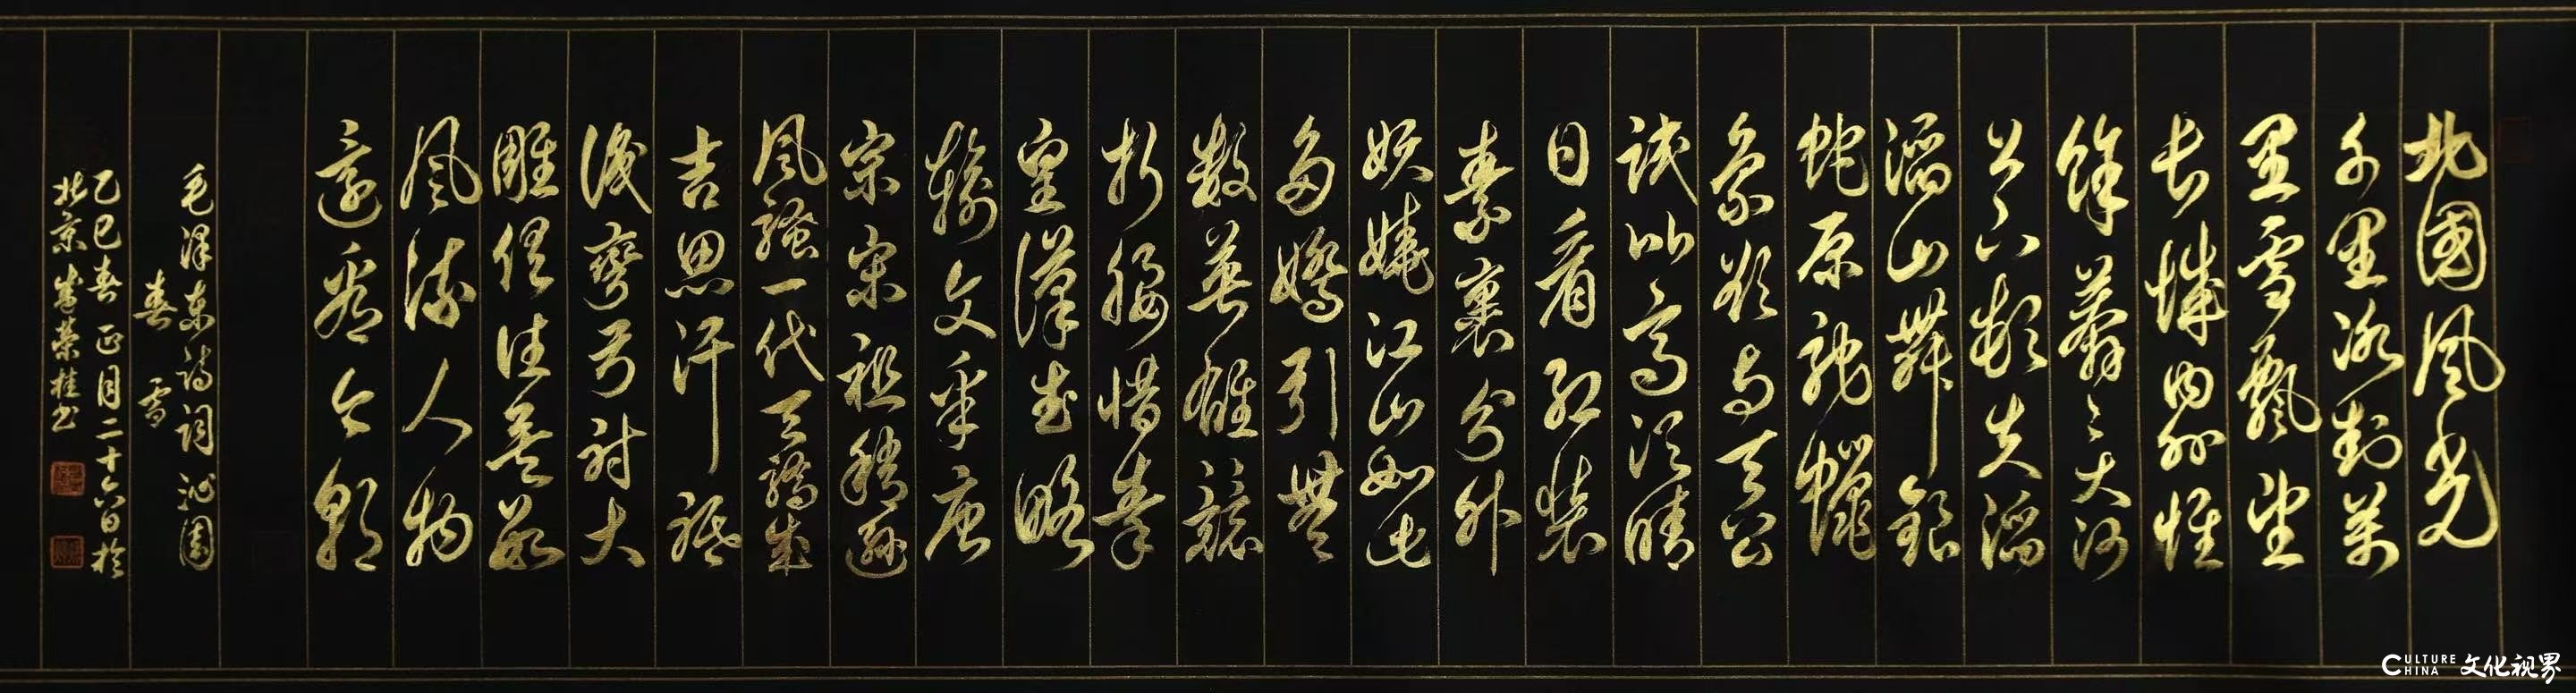 北國風光
千里冰封萬
里雪飄望
長城内外惟
餘莽〻大河
上下頓失滔
滔山舞銀
蛇原馳蠟
象欲與天公
試比高須晴
日看紅裝
素裹分外
妖嬈江山如此
多嬌引無
數英雄競
折腰惜秦
皇漢武略
輸文采唐
宗宋祖稍遜
風騷一代天驕成
吉思汗祇
識彎弓射大
雕俱往矣數
風流人物
還看今朝
毛澤東詩詞沁園
春雪
乙巳春正月二十六日於
北京榮桂书
CULTURE CHINA 文化视界